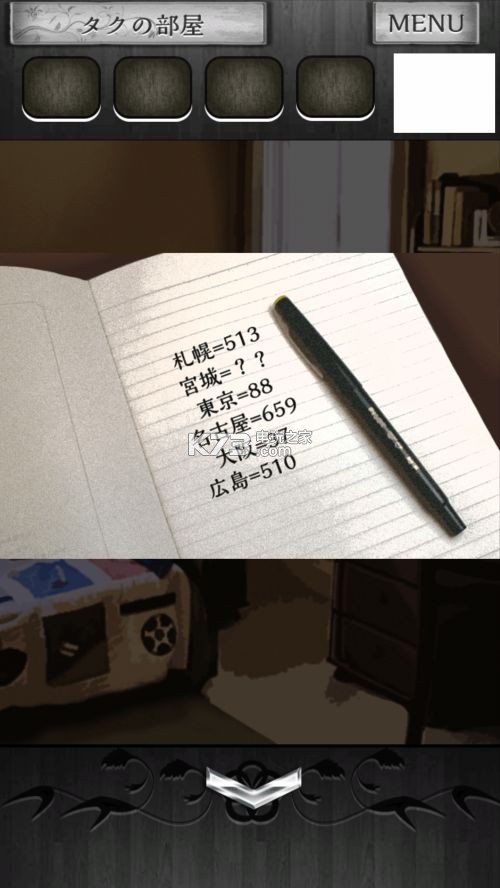 タクの部屋
MENU
札幌=513
宮城=？？
東京=88
名古屋=659
大阪=57
広島=510
K73 电玩之家
.com